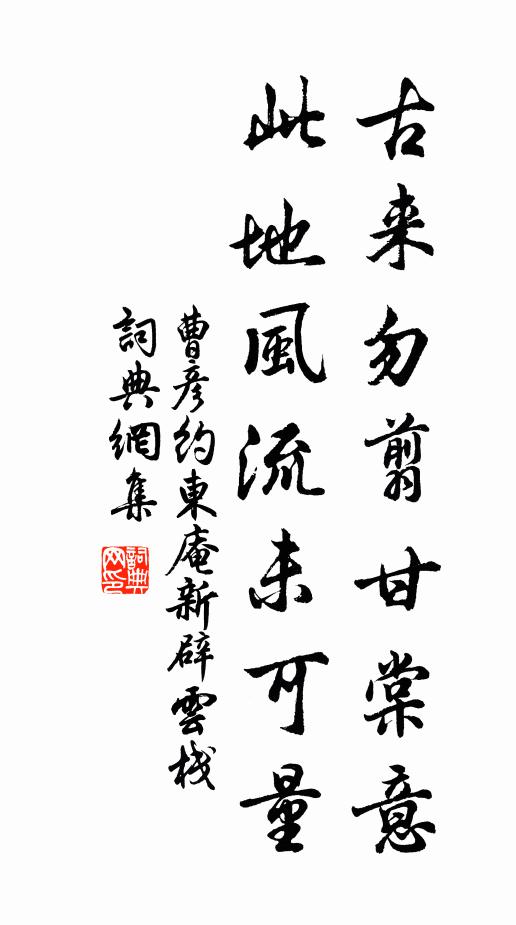 古来勿翦甘棠意
此地風流未可量
曹彦約東庵新辟雲棧
詞典網集
詞典網印